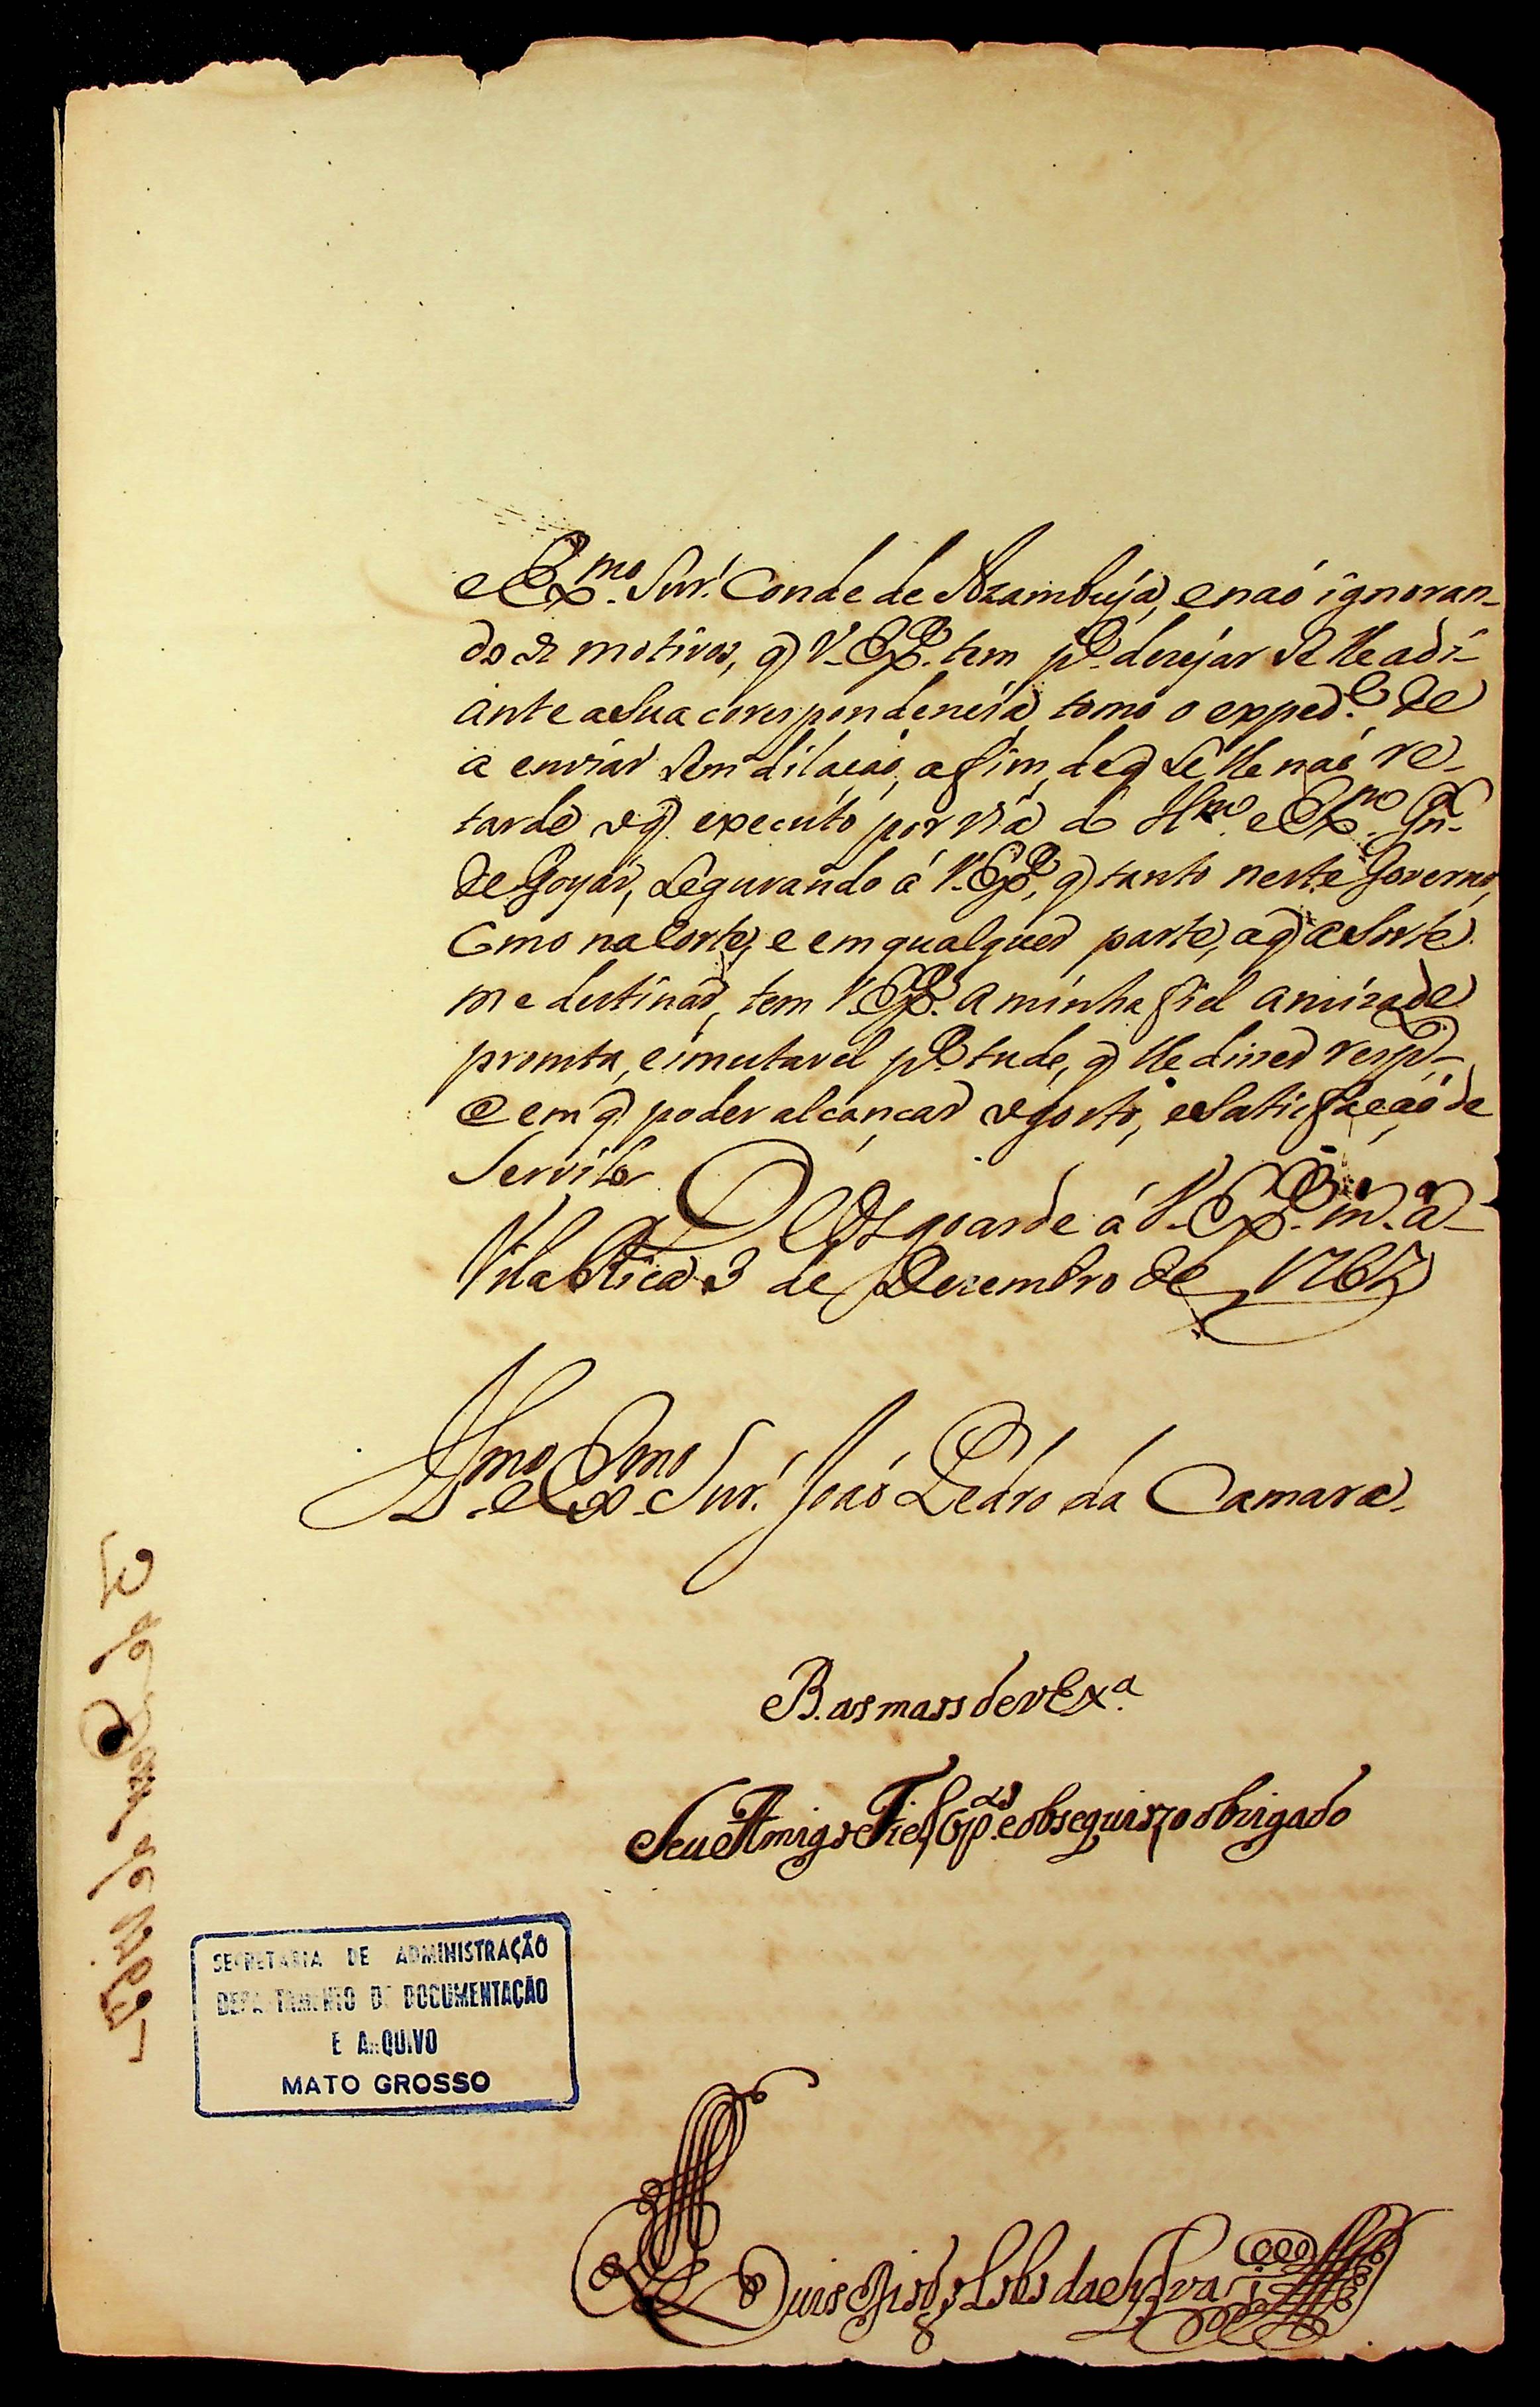 e Ex.mo Snr. Conde de Azambuja, e naó ignoran-
do os motivos, q V. Ex.a tem p.a desejar se lhe adi-
ante a sua corespondencia, tomo o exped.e de
a enviar sem dilaçaó, afim, de q se lhe naó re-
tarde, o q executo por via do Ill.mo e Ex.mo Gn.al
de Goyáz, segurando á V. Ex.a, q tanto neste Governo,
Como na Corte, e em qualquer parte, a q a sorte
me destinar, tem V. Ex.a a minha fiel amizade
promta, e imutavel p.a tudo, q lhe disser resp.to
e em q poder alcançar o gosto, e satisfaçaó de
Servilo. Ds goarde á V. Ex.a m. a.
Vila Rica 3 de Dezembro de 1767
Ill.mo e Ex.mo Snr. Joaó Pedro da Camara.
B. as maos de V Ex.a
Seu Amigo Fiel e obsequiozo obrigado
SECRETARIA DE ADMINISTRAÇÃO
DEPARTAMENTO DE DOCUMENTAÇÃO
E ARQUIVO
MATO GROSSO
Luis Diogo Lobo da Sylva